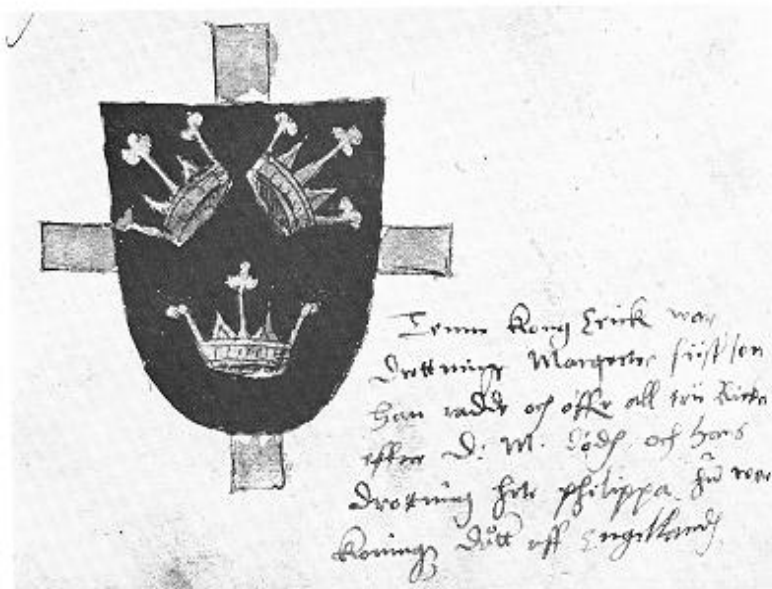 Tenne kong Erick war
drottning Margretes süst son
han radde och öffr all trü Rica
effter D. M. dödh, och hans
drotning hete philippa hū war
konungz dått aff Engelland